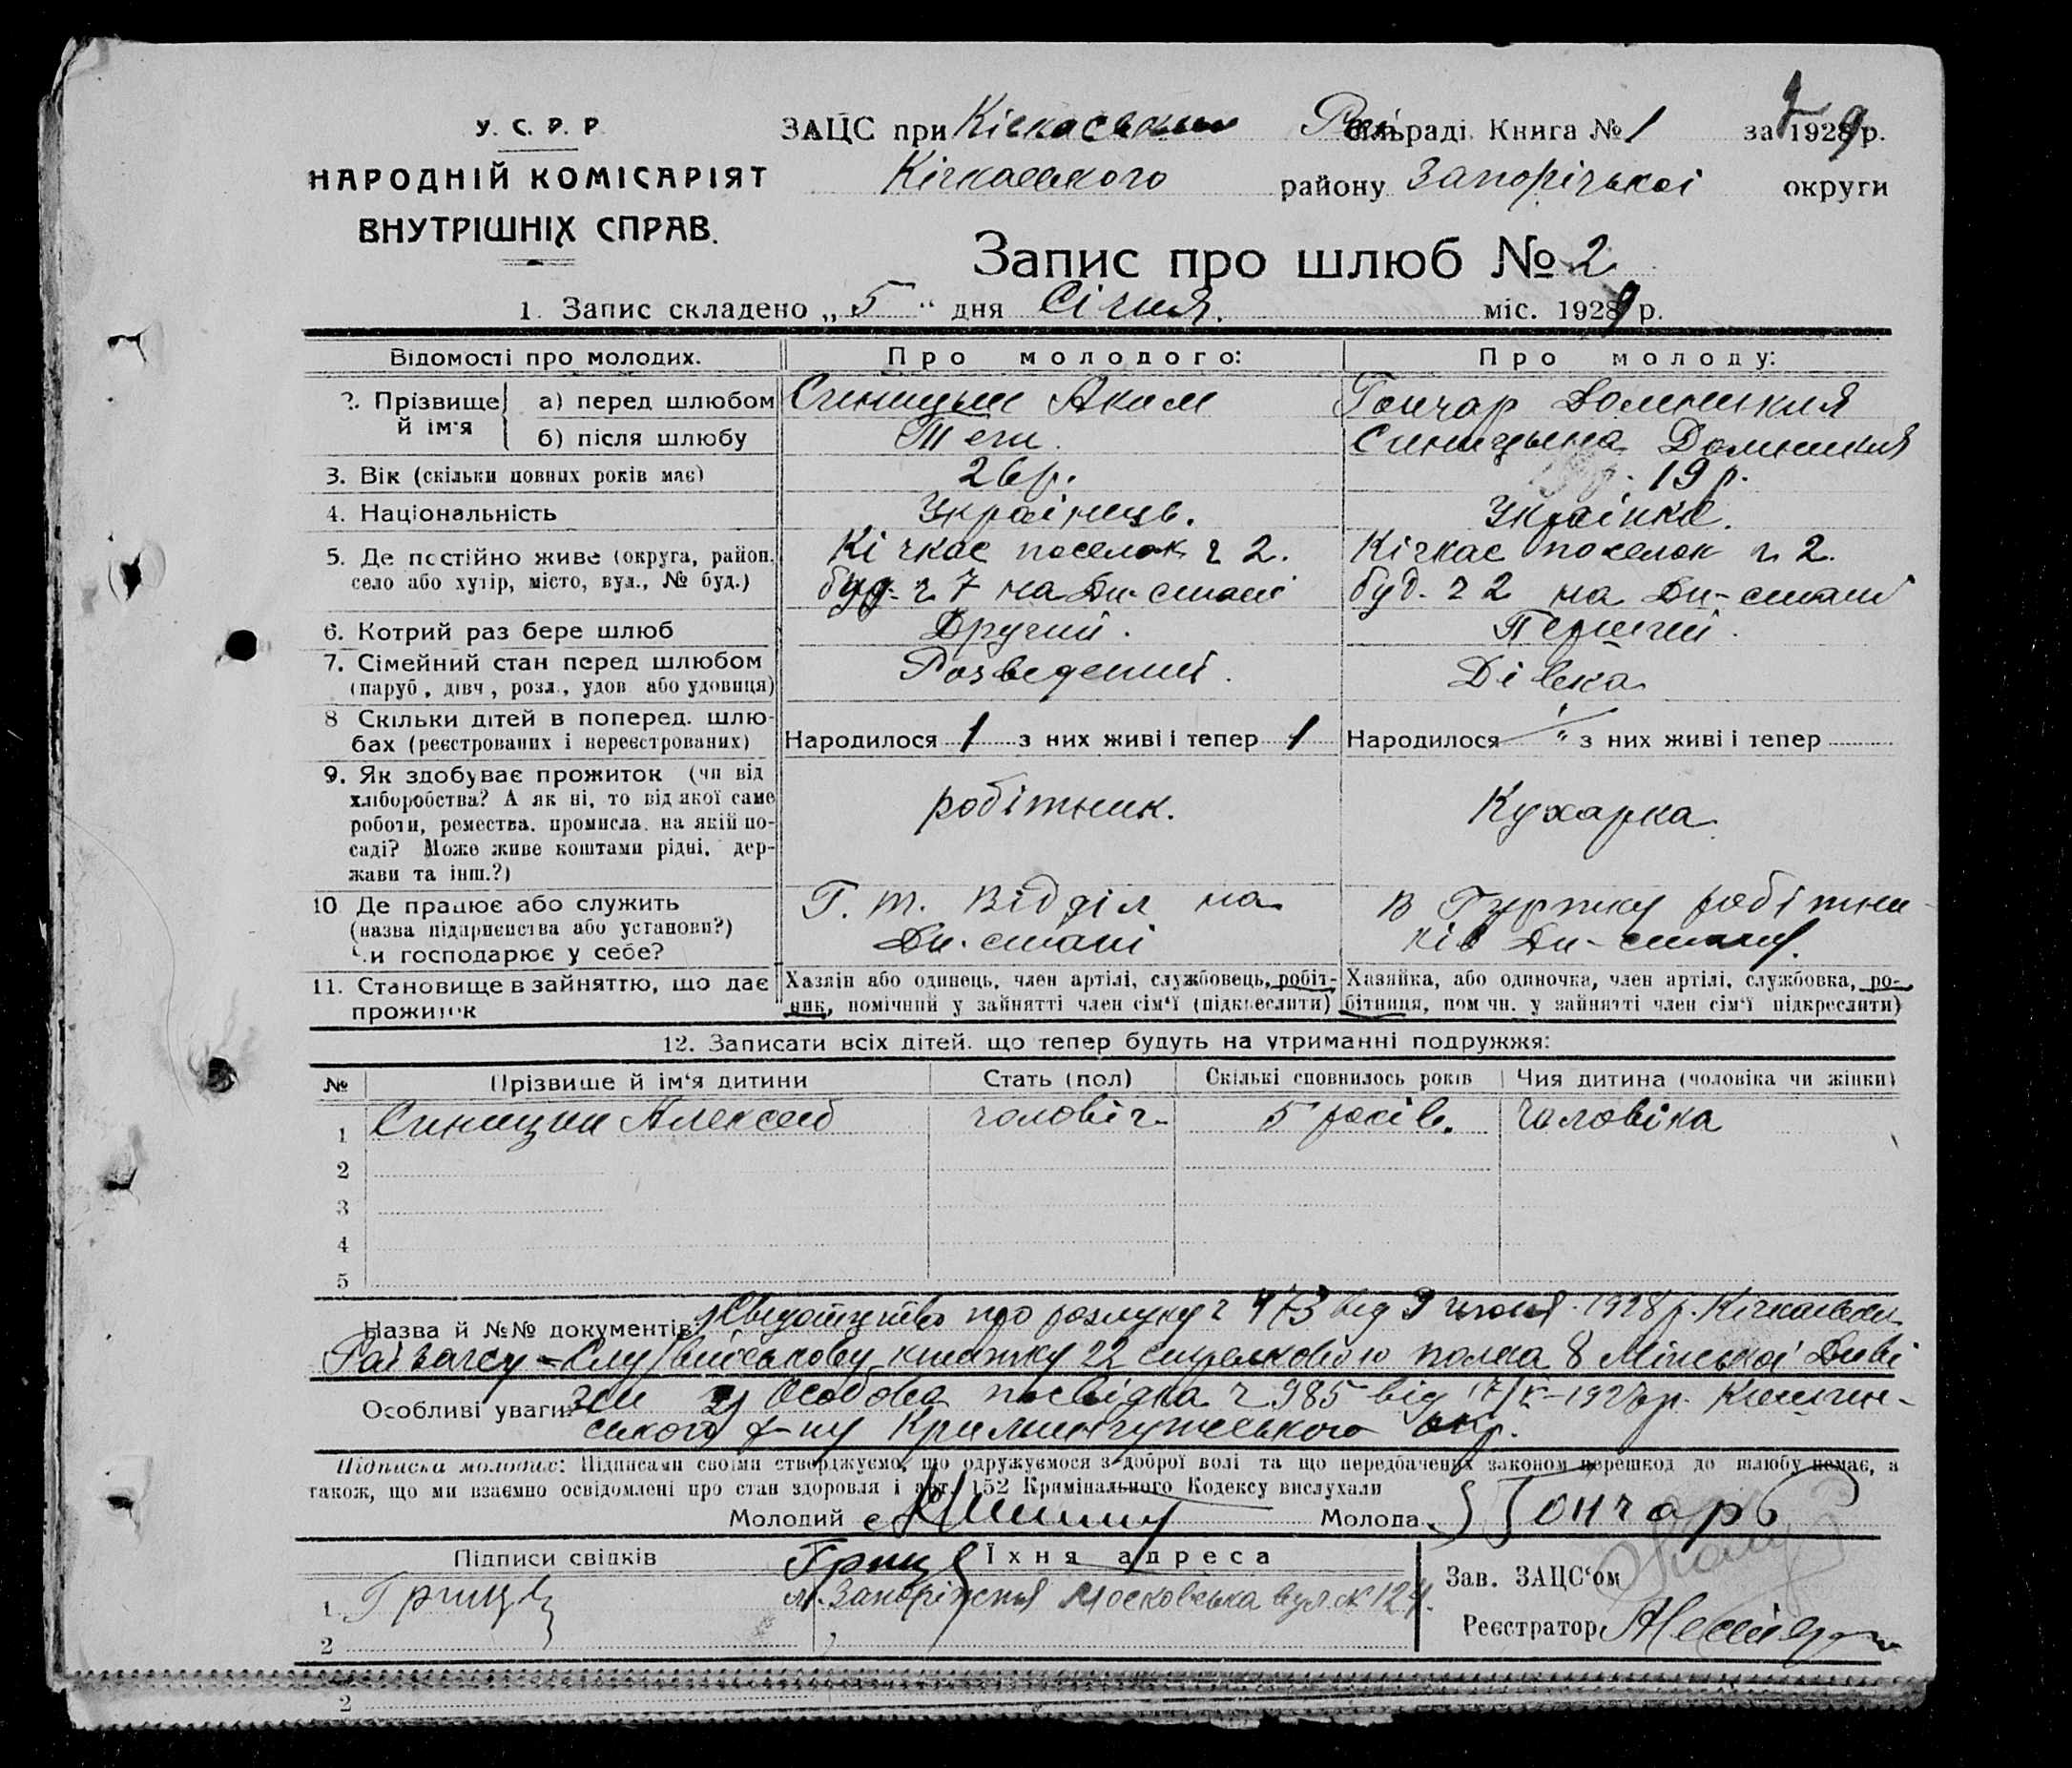 У. С. Р. Р.
НАРОДНІЙ КОМІСАРІЯТ
ВНУТРІШНІХ СПРАВ.
ЗАЦС при Кічкаським Рай раді Книга № 1 за 1929 р.
Кічкаського району Запорізької округи
Запис про шлюб № 2
1. Запис складено „ 5 “ дня Січня. міс. 1929 р.
Відомості про молодих. Про молодого: Про молоду:
2. Прізвище й ім'я а) перед шлюбом Синицын Аким Гончар Домникия
б) після шлюбу Теж Синицына Домникия
3. Вік (скільки повних років має) 26 р. 19 р.
4. Національність Українець. Українка.
5. Де постійно живе (округа, район, село або хутір, місто, вул., № буд.) Кічкас поселок ч 2. Кічкас поселок ч 2.
буд. ч 7 на Дн-стані буд. ч 2 на Дн-стані
6. Котрий раз бере шлюб Другий. Перший.
7. Сімейний стан перед шлюбом Розведений. Дівка
(паруб., дівч., розл., удов. або удовиця)
8 Скільки дітей в поперед. шлюбах (реєстрованих і нереєстрованих) Народилося 1 з них живі і тепер 1 Народилося " з них живі і тепер
9. Як здобуває прожиток (чи від хліборобства? А як ні, то від якої саме роботи, ремества, промисла, на якій посаді? Може живе коштами рідні, держави та інш.?) робітник. Кухарка
10 Де працює або служить Г. т. Відділ на В Гуртку робітни-
(назва підприємства або установи?) Дн. стані ків Дн-стану.
Чи господарює у себе?
11. Становище в зайняттю, що дає прожиток Хазяїн або одинець, член артілі, службовець, робіт- Хазяйка, або одиночка, член артілі, службовка, ро-
ник, помічний у зайнятті член сім'ї (підкреслити) бітниця, пом чн. у зайнятті член сім'ї підкреслити)
12. Записати всіх дітей, що тепер будуть на утриманні подружжя:
№ Прізвище й ім'я дитини Стать (пол) Скількі сповнилось років Чия дитина (чоловіка чи жінки)
1 Синицин Алексей чоловіч. 5 років. Чоловіка
2
3
4
5
Назва й №№ документів про розлуку ч 473 від 9 1928 р.
Райзагсу - військову книжку 22 стрелкового полка 8 Мінської Диві
Особливі уваги: зии 2) Особова посвідка ч 985 від
ського р-ну Крименчутського окр.
Підписка молодих: Підписами своїми стверджуємо, що одружуємося з доброї волі та що передбачених законом перешкод до шлюбу немає, а
також, що ми взаємно освідомлені про стан здоровля і арт. 152 Кримінального Кодексу вислухали
Молодий Молода Гончарь
Підписи свідків Їхня адреса Зав. ЗАЦС'ом
1 м. Запоріжжя Московська вул. № 124.
Реєстратор
2
2